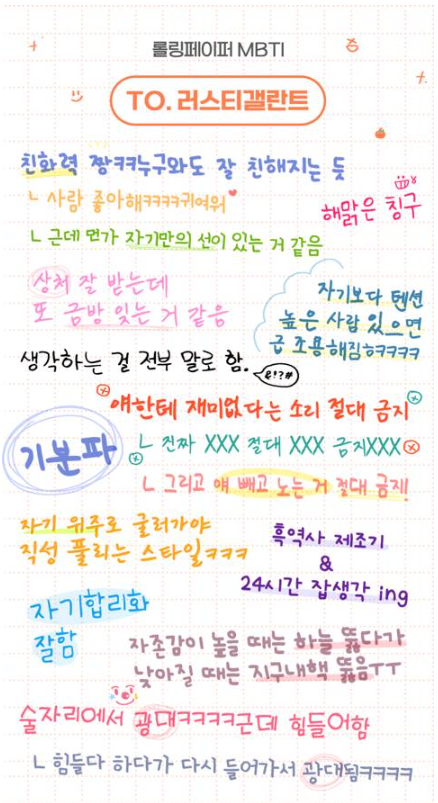 롤링페이퍼 MBTI
TO. 러스티갤란트
친화력 짱ㅋㅋ누구와도 잘 친해지는 듯
ㄴ 사람 좋아해ㅋㅋㅋㅋ귀여워
해맑은 칭구
ㄴ 근데 먼가 자기만의 선이 있는 거 같음
상처 잘 받는데
또 금방 잊는 거 같음
자기보다 텐션
높은 사람 있으면
급 조용해짐ㅎㅋㅋㅋㅋ
생각하는 걸 전부 말로 함.
&!?#
얘한테 재미없다는 소리 절대 금지
ㄴ 진짜 XXX 절대 XXX 금지XXX
기분파
ㄴ 그리고 얘 빼고 노는 거 절대 금지!
자기 위주로 굴러가야
직성 풀리는 스타일ㅋㅋㅋ
흑역사 제조기
&
24시간 잡생각 ing
자기합리화
잘함
자존감이 높을 때는 하늘 뚫다가
낮아질 때는 지구내핵 뚫음ㅜㅜ
술자리에서 광대ㅋㅋㅋㅋ근데 힘들어함
ㄴ 힘들다 하다가 다시 들어가서 광대됨ㅋㅋㅋㅋ